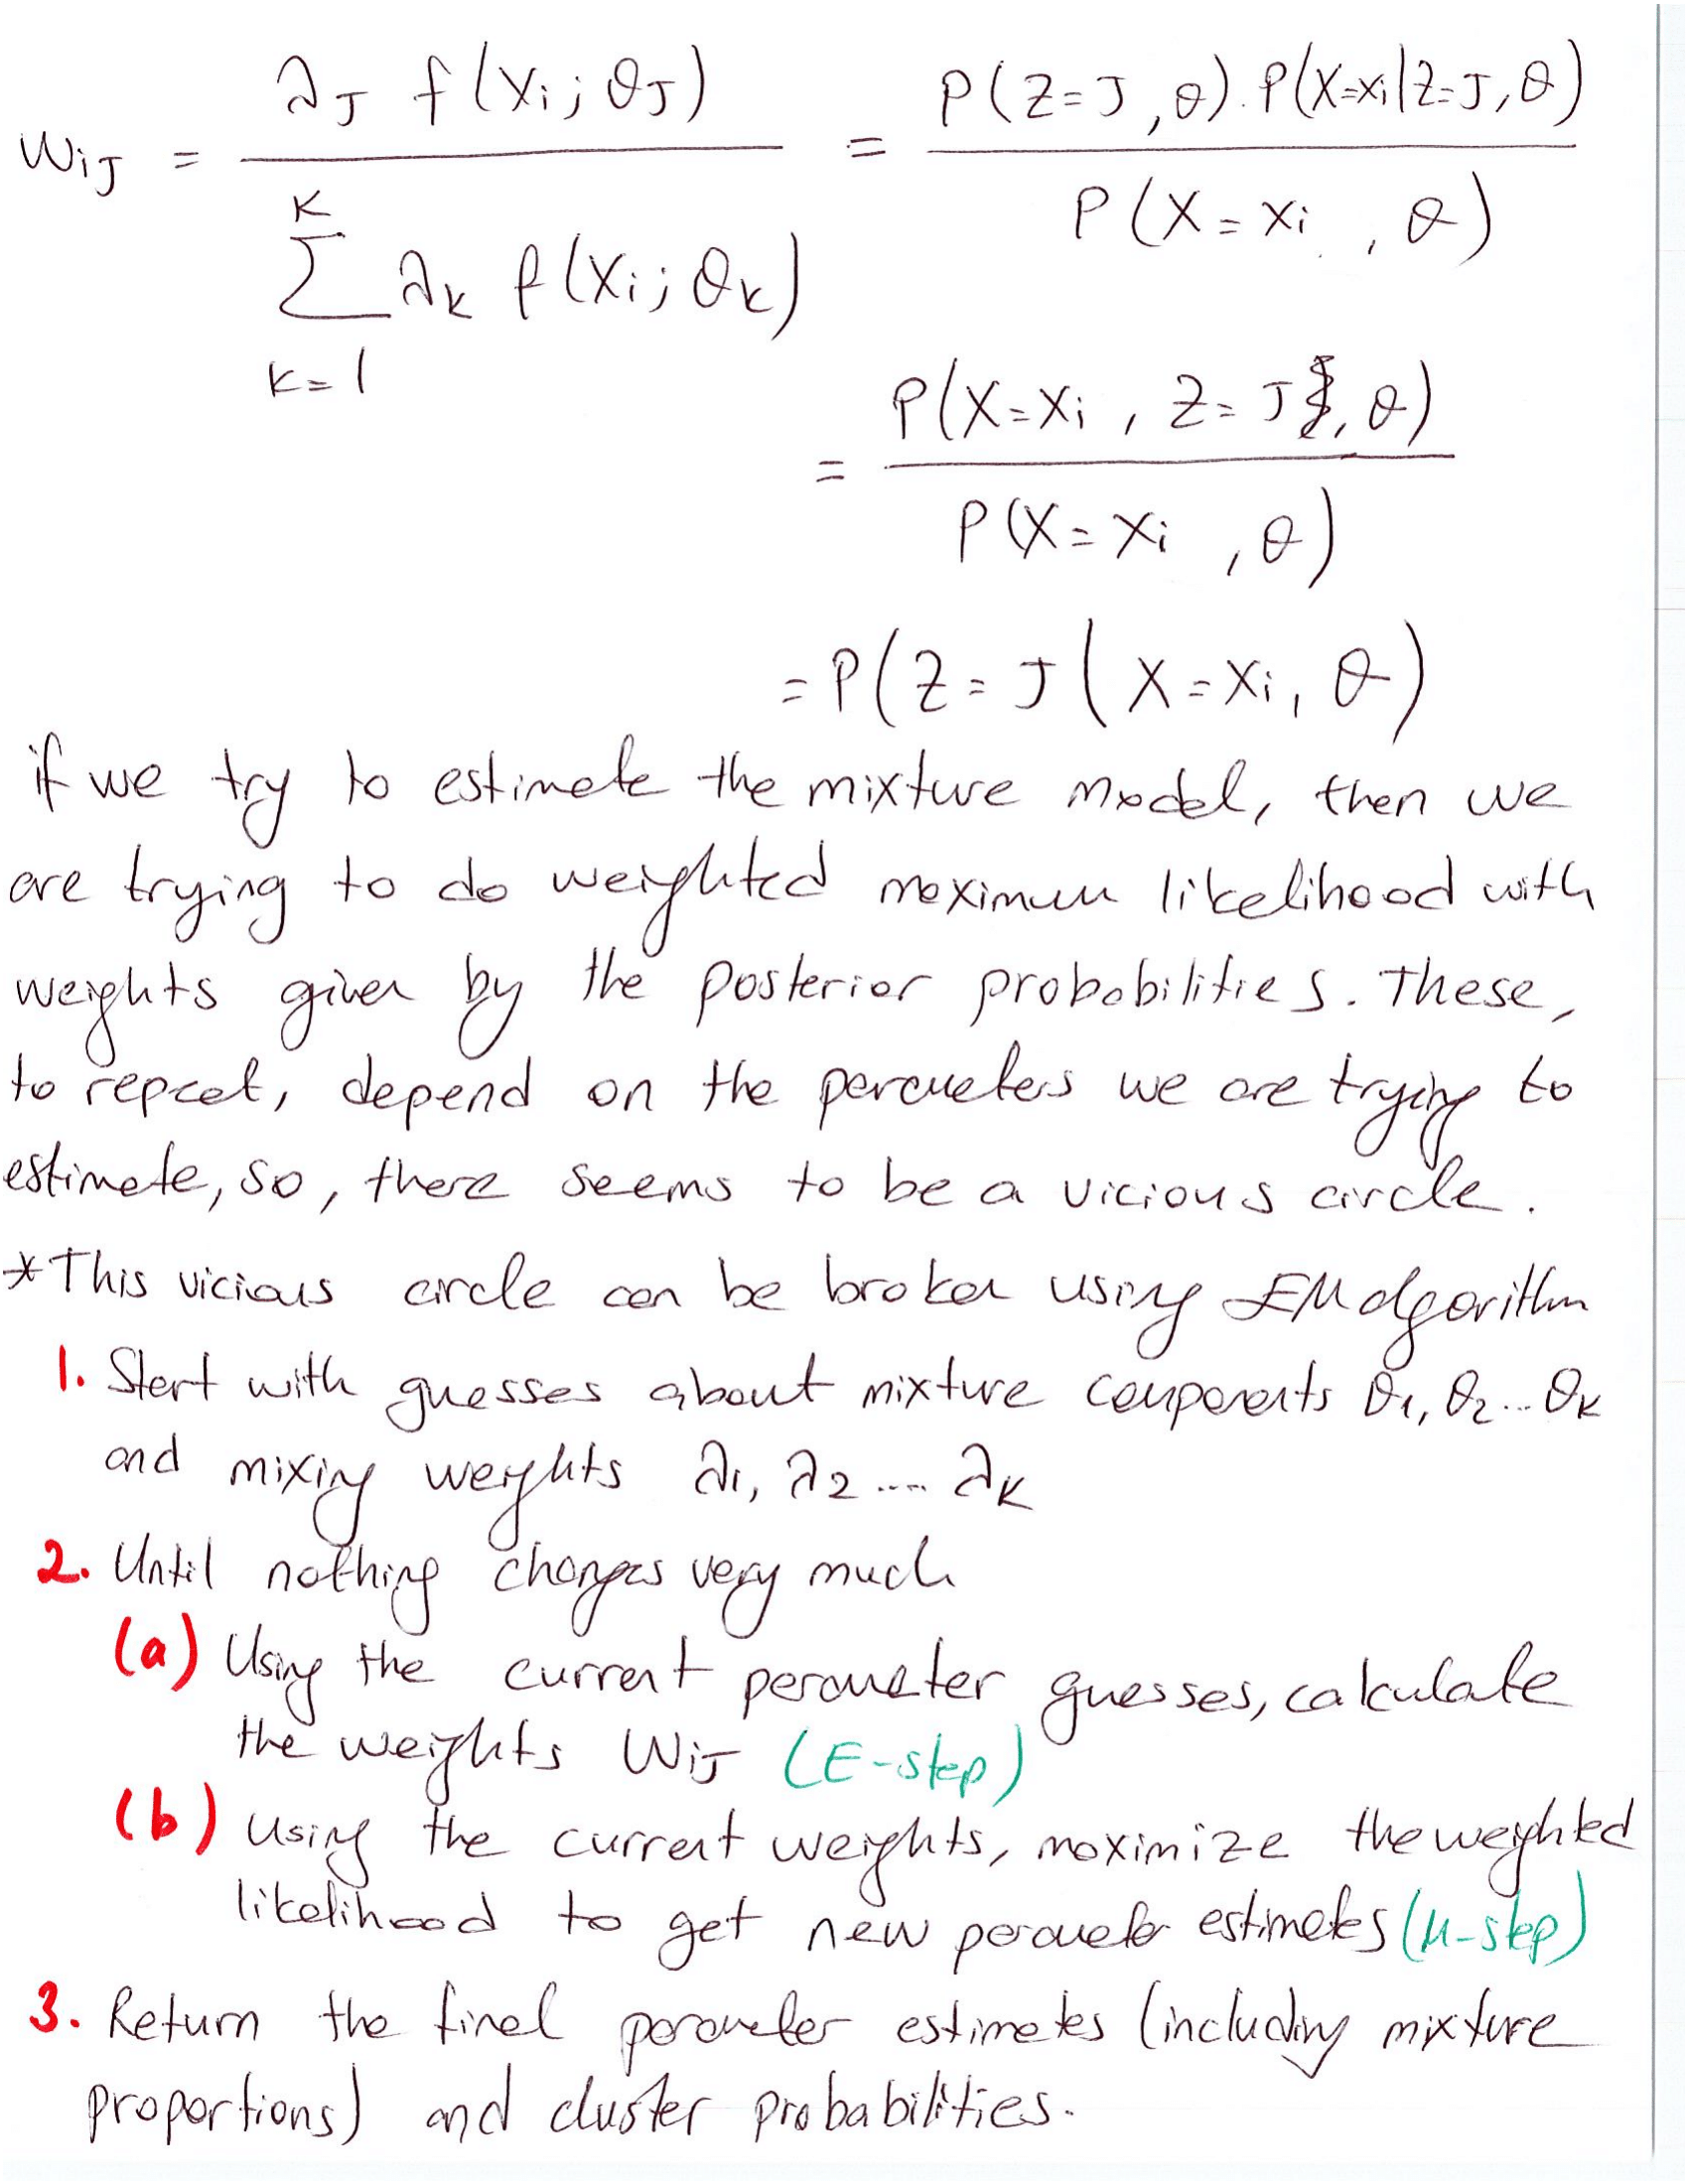 w_{iJ} = \frac{λ_J f(x_i; θ_J)}{\sum_{k=1}^{K} λ_k f(x_i; θ_k)} = \frac{P(Z=J, θ). P(X=x_i|Z=J, θ)}{P(X=x_i, θ)}
= \frac{P(X=x_i, Z=J, θ)}{P(X=x_i, θ)}
= P(Z=J | X=x_i, θ)
if we try to estimate the mixture model, then we
are trying to do weighted maximum likelihood with
weights given by the posterior probabilities. These,
to repeat, depend on the parameters we are trying to
estimate, so, there seems to be a vicious circle.
*This vicious circle can be broken using EM algorithm
1. Start with guesses about mixture components θ_1, θ_2 ... θ_K
and mixing weights λ_1, λ_2 .... λ_K
2. Until nothing changes very much
(a) Using the current parameter guesses, calculate
the weights w_{iJ} (E-step)
(b) Using the current weights, maximize the weighted
likelihood to get new parameter estimates (M-step)
3. Return the final parameter estimates (including mixture
proportions) and cluster probabilities.